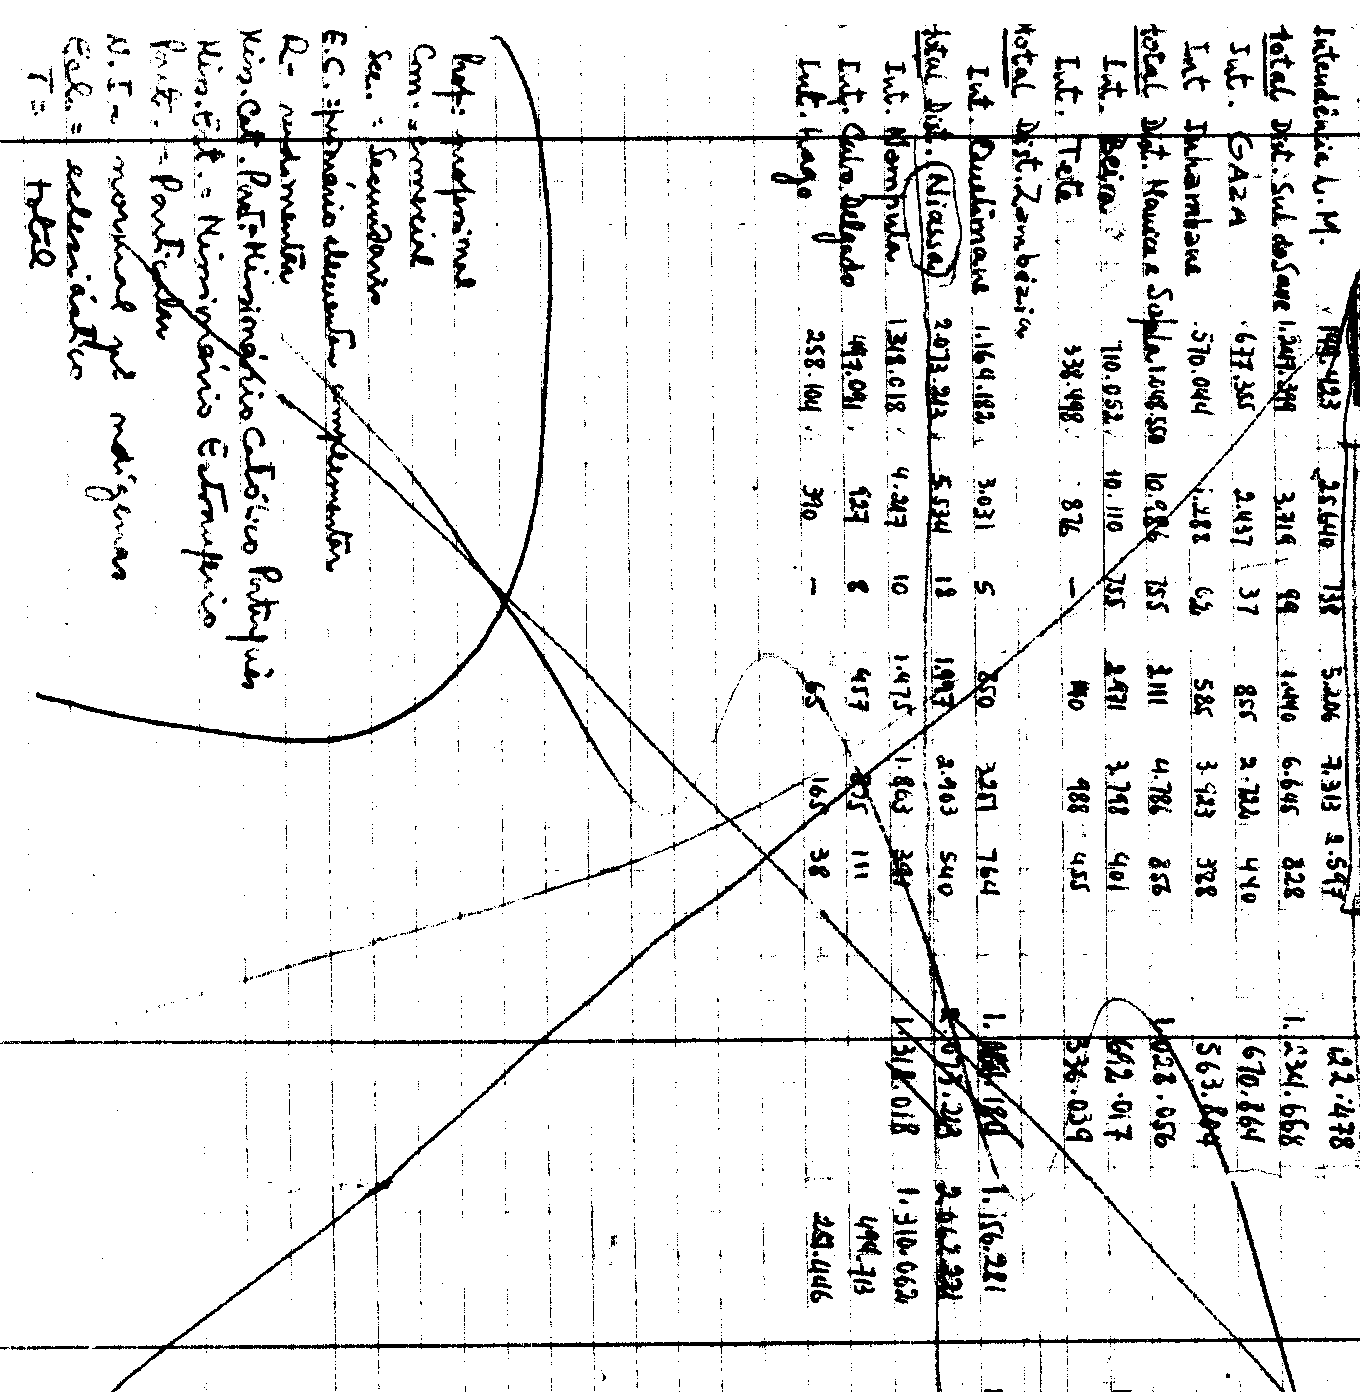 Intendência L. M. 25.440 738 5.206 7.313 2.597
total Dist. Sul do Save 1.247.399 3.716 99 6.645 828 1.234.668
Int. GAZA 677.355 2.437 37 855 2.722 440 670.864
Int Inhambane 570.044 1.288 62 585 3.923 388 563.804
total Dist. Manica e Sofala 10.986 755 3.111 4.786 856 1.028.056
Int. Beira 710.052 10.110 755 2.971 3.798 401 692.017
Int. Tete 338.498 876 — 140 988 455 336.039
total Dist. Zambézia
Int. Quelimane 1.164.182 3.031 5 850 3.251 764 1.156.281
total Dist. (Niassa) 2.073.213 5.534 18 1.997 2.903 540
Int. Nampula 1.318.018 4.247 10 1.475 1.863 1.318.018 1.310.062
Int. Cabo Delgado 497.091 927 8 457 875 111 494.713
Int. Lago 258.104 390 — 65 165 38
Prof: profissional
Com. = comercial
Sec. = Secundario
E.C. = primário elementar complementar
R = rudimentar
Miss. Cat. Port. = Missionário Católico Português
Miss. Est. = Missionário Estrangeiro
Part. = Particular
N. I = normal pª indígenas
Ecl. = eclesiástico
T = total